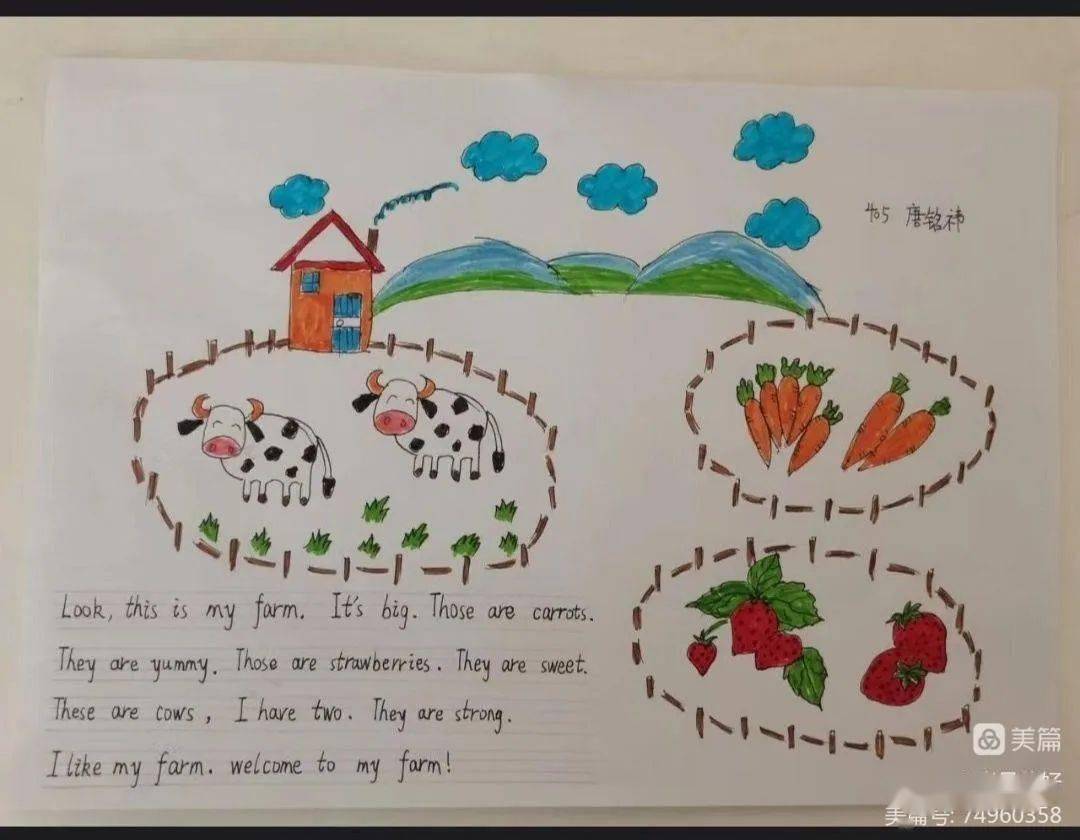 405 唐铭祎
Look, this is my farm. It's big. Those are carrots.
They are yummy. Those are strawberries. They are sweet.
These are cows, I have two. They are strong.
I like my farm. welcome to my farm!
美篇
美篇号: 74960358